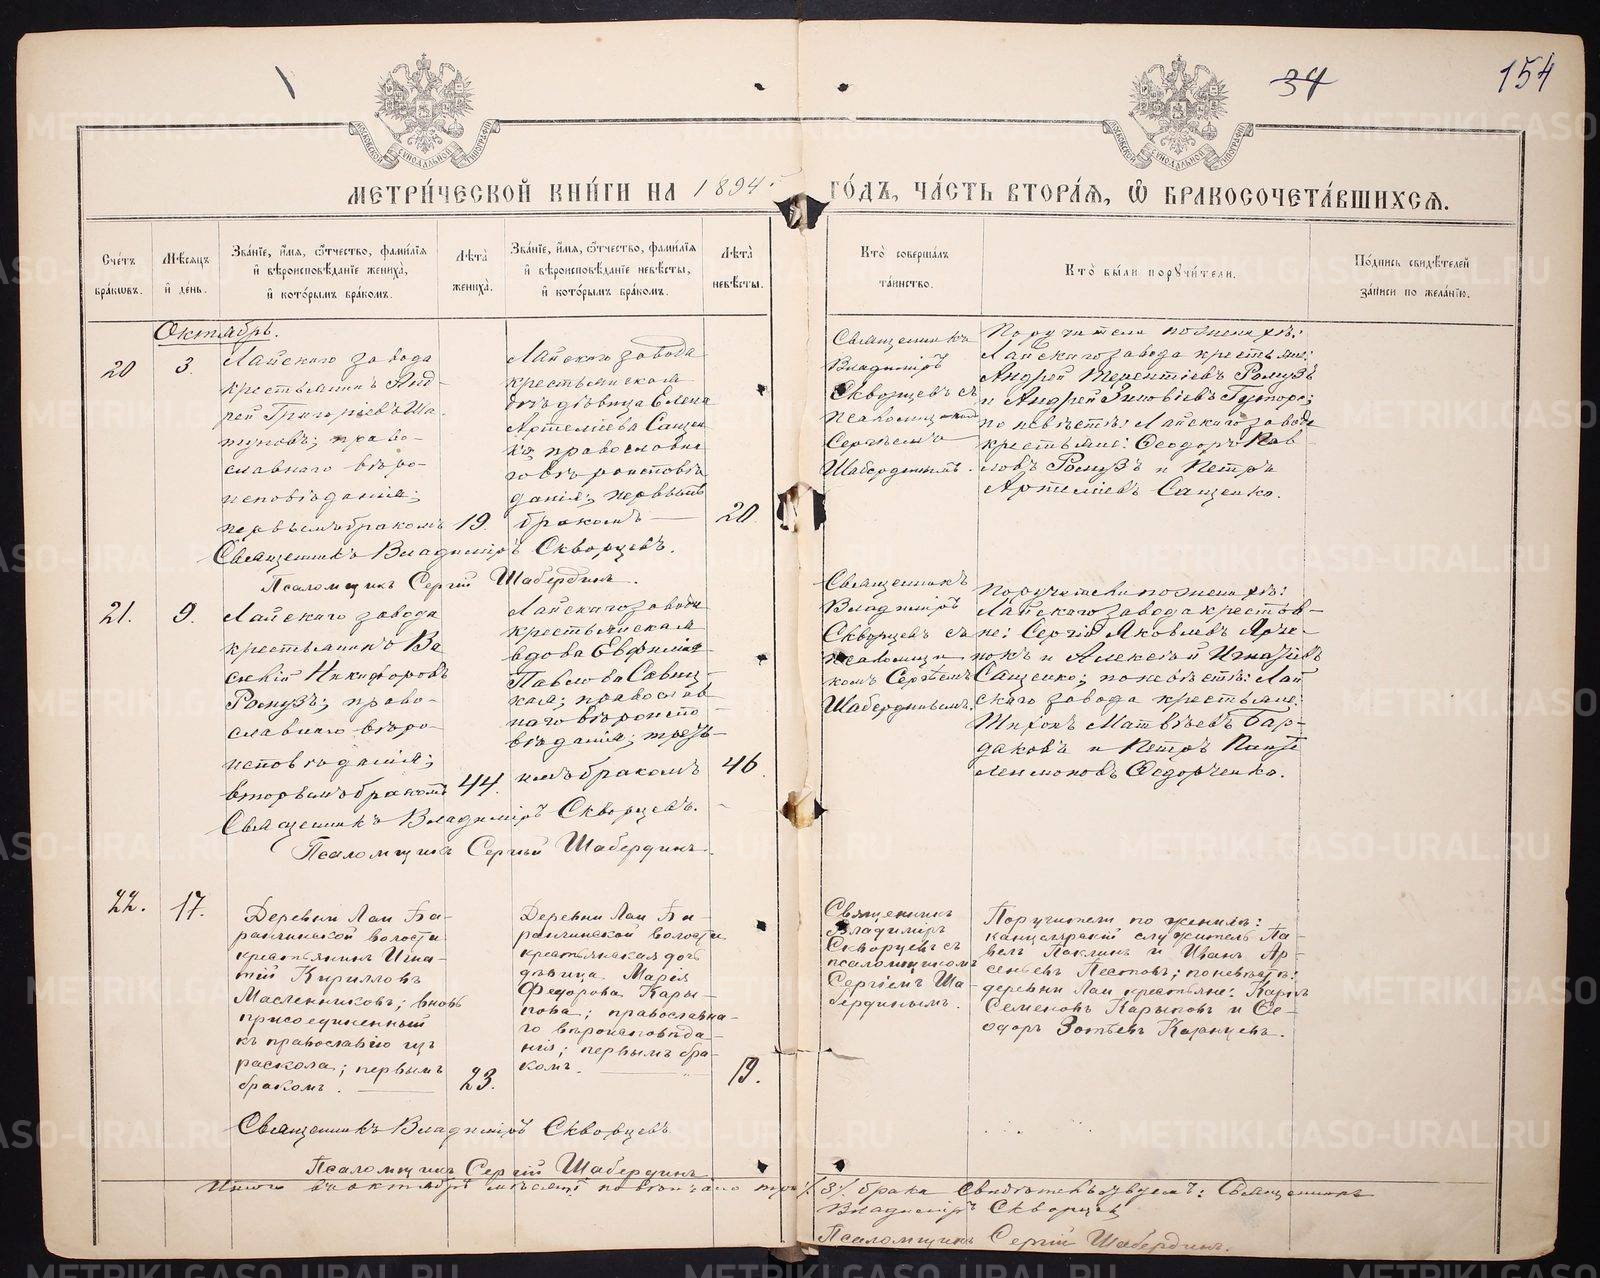 34
154
МОСКОВСКОЙ СѴНОДАЛЬНОЙ ТИПОГРАФІИ
МОСКОВСКОЙ СѴНОДАЛЬНОЙ ТИПОГРАФІИ
МЕТРИ́ЧЕСКОЙ КНИ́ГИ НА 1894 ГО́ДЪ, ЧА́СТЬ ВТОРА́Я, Ѽ БРАКОСОЧЕТА́ВШИХСЯ.
Сче́тъ бра́кѡвъ.
Мѣ́сяцъ и҆ день.
Зва́нїе, и҆́мя, ѻ҆́тчество, фамѝлїя и҆ вѣроисповѣ́данїе жениха̀, и҆ кото́рымъ бра́комъ.
Лѣ́та̀ жениха̀.
Зва́нїе, и҆́мя, ѻ҆́тчество, фамѝлїя и҆ вѣроисповѣ́данїе невѣ́сты, и҆ кото́рымъ бра́комъ.
Лѣ́та̀ невѣ́сты.
Кто̀ соверша́лъ та́инство.
Кто̀ бы́ли порꙋчи́тели.
По́дпись свидѣ́телей за́писи по жела́нїю.
Октябрь.
20
3.
Лайскаго завода
крестьянинъ Анд-
рей Григорiевъ Ша-
пуловъ; право-
славнаго вѣро-
исповѣданiя;
первымъ бракомъ
19.
Лайскаго завода
крестьянская
дочь дѣвица Елена
Артемiева Сащен
ко, православна
го вѣроисповѣ
данiя; первымъ
бракомъ
20
Священникъ
Владимiръ
Скворцевъ съ
псаломщикомъ
Сергѣемъ
Шабердинымъ.
Поручители по женихѣ:
Лайскаго завода крестьяне:
Андрей Терентiевъ Ромузъ
и Андрей Зиновiевъ
по невѣстѣ: Лайскаго завода
крестьяне: Ѳеодоръ Пав
ловъ Ромузъ и Петръ
Артемiевъ Сащенко.
Священникъ Владимiръ Скворцевъ.
Псаломщикъ Сергiй Шабердинъ.
21.
9.
Лайскаго завода
крестьянинъ Ва
силiй Никифоровъ
Ромузъ; право-
славнаго вѣро-
исповѣданiя;
вторымъ бракомъ
44.
Лайскаго завода
крестьянская
вдова Евфимiя
Павлова Савиц
кая; православ
наго вѣроиспо-
вѣданiя; треть-
имъ бракомъ
46.
Священникъ
Владимiръ
Скворцевъ съ
псаломщи
комъ Сергѣемъ
Шабердинымъ.
Поручители по женихѣ:
Лайскаго завода крестья-
не: Сергiй Яковлевъ Яре-
покъ и Алексѣй Игнатiевъ
Сащенко; по невѣстѣ: Лай
скаго завода крестьяне:
Тихонъ Матвѣевъ Бар-
даковъ и Петръ Панте
леимоновъ Ѳедорченко.
Священникъ Владимiръ Скворцевъ.
Псаломщикъ Сергiй Шабердинъ.
22.
17.
Деревни Лаи Ба-
ранчинской волости
крестьянинъ Игна-
тiй Кирилловъ
Масленниковъ; вновь
присоединенный
къ православiю изъ
раскола; первымъ
бракомъ.
23.
Деревни Лаи Ба-
ранчинской волости
крестьянская дочь
дѣвица Марiя
Федорова Кары-
пова; православна-
го вѣроисповѣда-
нiя; первымъ бра-
комъ.
19.
Священникъ
Владимiръ
Скворцевъ съ
псаломщикомъ
Сергiемъ Ша-
бердинымъ.
Поручители по женихѣ:
канцелярскiй служитель Па-
велъ Паклинъ и Иванъ Ар-
сеньевъ Пестовъ; по невѣстѣ:
деревни Лаи крестьяне: Карпъ
Семеновъ Карыповъ и Ѳе-
одоръ Зотѣевъ Казанцевъ.
Священникъ Владимiръ Скворцевъ
Псаломщикъ Сергiй Шабердинъ
Итого въ октябрѣ мѣсяцѣ повѣнчано три /3/ брака Свидѣтельствуемъ: Священникъ
Владимiръ Скворцевъ
Псаломщикъ Сергiй Шабердинъ.
METRIKI.GASO-URAL.RU